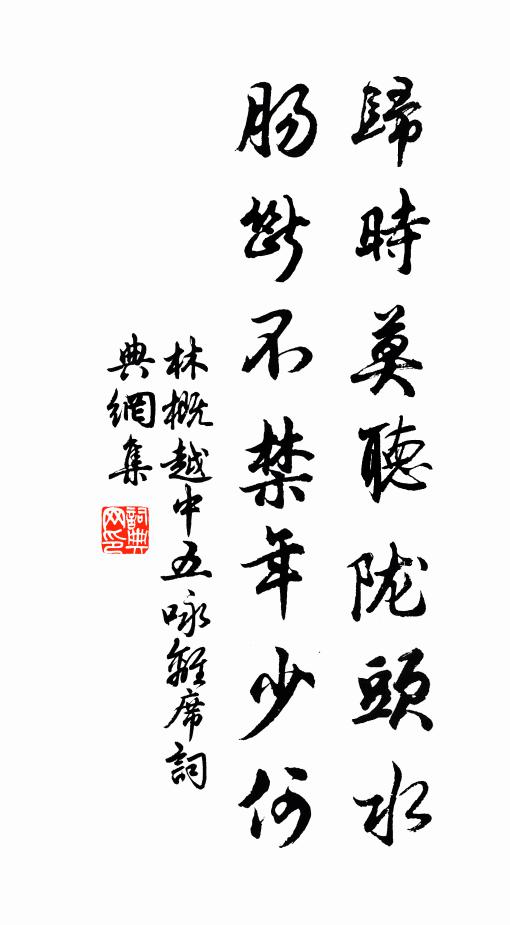 歸時莫聽陇頭水
肠斷不禁年少何
林概越中五咏離席詞
典網集
詞典網印